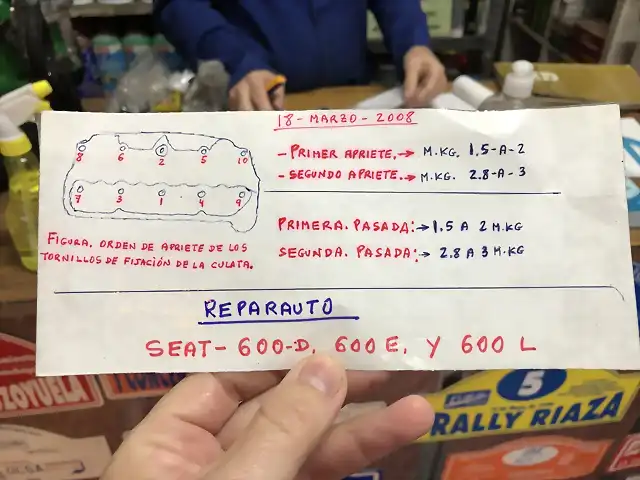 18-MARZO-2008
8 6 2 5 10
7 3 1 4 9
FIGURA. ORDEN DE APRIETE DE LOS
TORNILLOS DE FIJACIÓN DE LA CULATA.
- PRIMER APRIETE.→ M.KG. 1.5-A-2
- SEGUNDO APRIETE.→ M.KG. 2.8-A-3
PRIMERA. PASADA:→1.5 A 2 M.KG
SEGUNDA. PASADA:→ 2.8 A 3 M.KG
REPARAUTO
SEAT-600-D, 600 E, Y 600 L
5
RALLY RIAZA